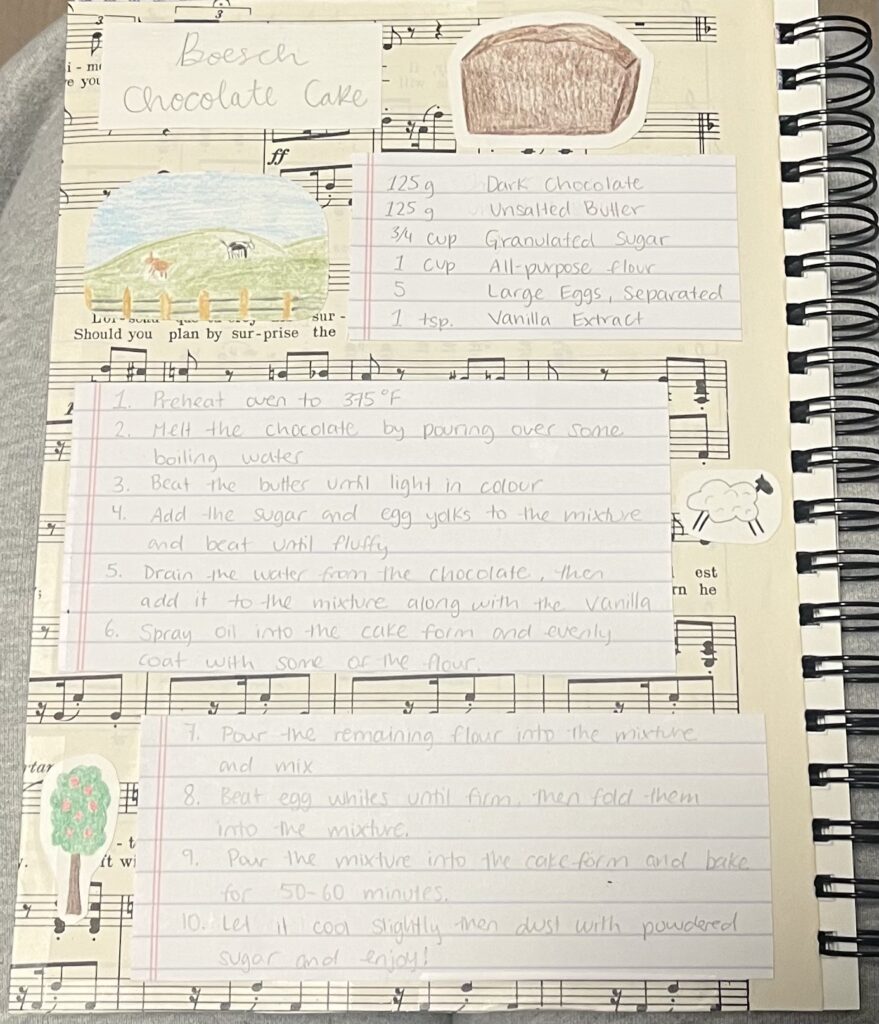 Boesch
Chocolate Cake
3
3
i - m
e you
ff
125 g Dark Chocolate
125 g Unsalted Butter
3/4 cup Granulated Sugar
1 cup All-purpose flour
5 Large Eggs, Separated
1 tsp. Vanilla Extract
sur -
Should you plan by sur-prise the
1. Preheat oven to 375°F
2. Melt the chocolate by pouring over some
boiling water
3. Beat the butter until light in colour
4. Add the sugar and egg yolks to the mixture
and beat until fluffy
5. Drain the water from the chocolate, then
add it to the mixture along with the vanilla
6. Spray oil into the cake form and evenly
coat with some of the flour.
est
rn he
7. Pour the remaining flour into the mixture
and mix
8. Beat egg whites until firm, then fold them
into the mixture.
9. Pour the mixture into the cake form and bake
for 50-60 minutes.
10. Let it cool slightly then dust with powdered
sugar and enjoy!
tar
- t
ft wi